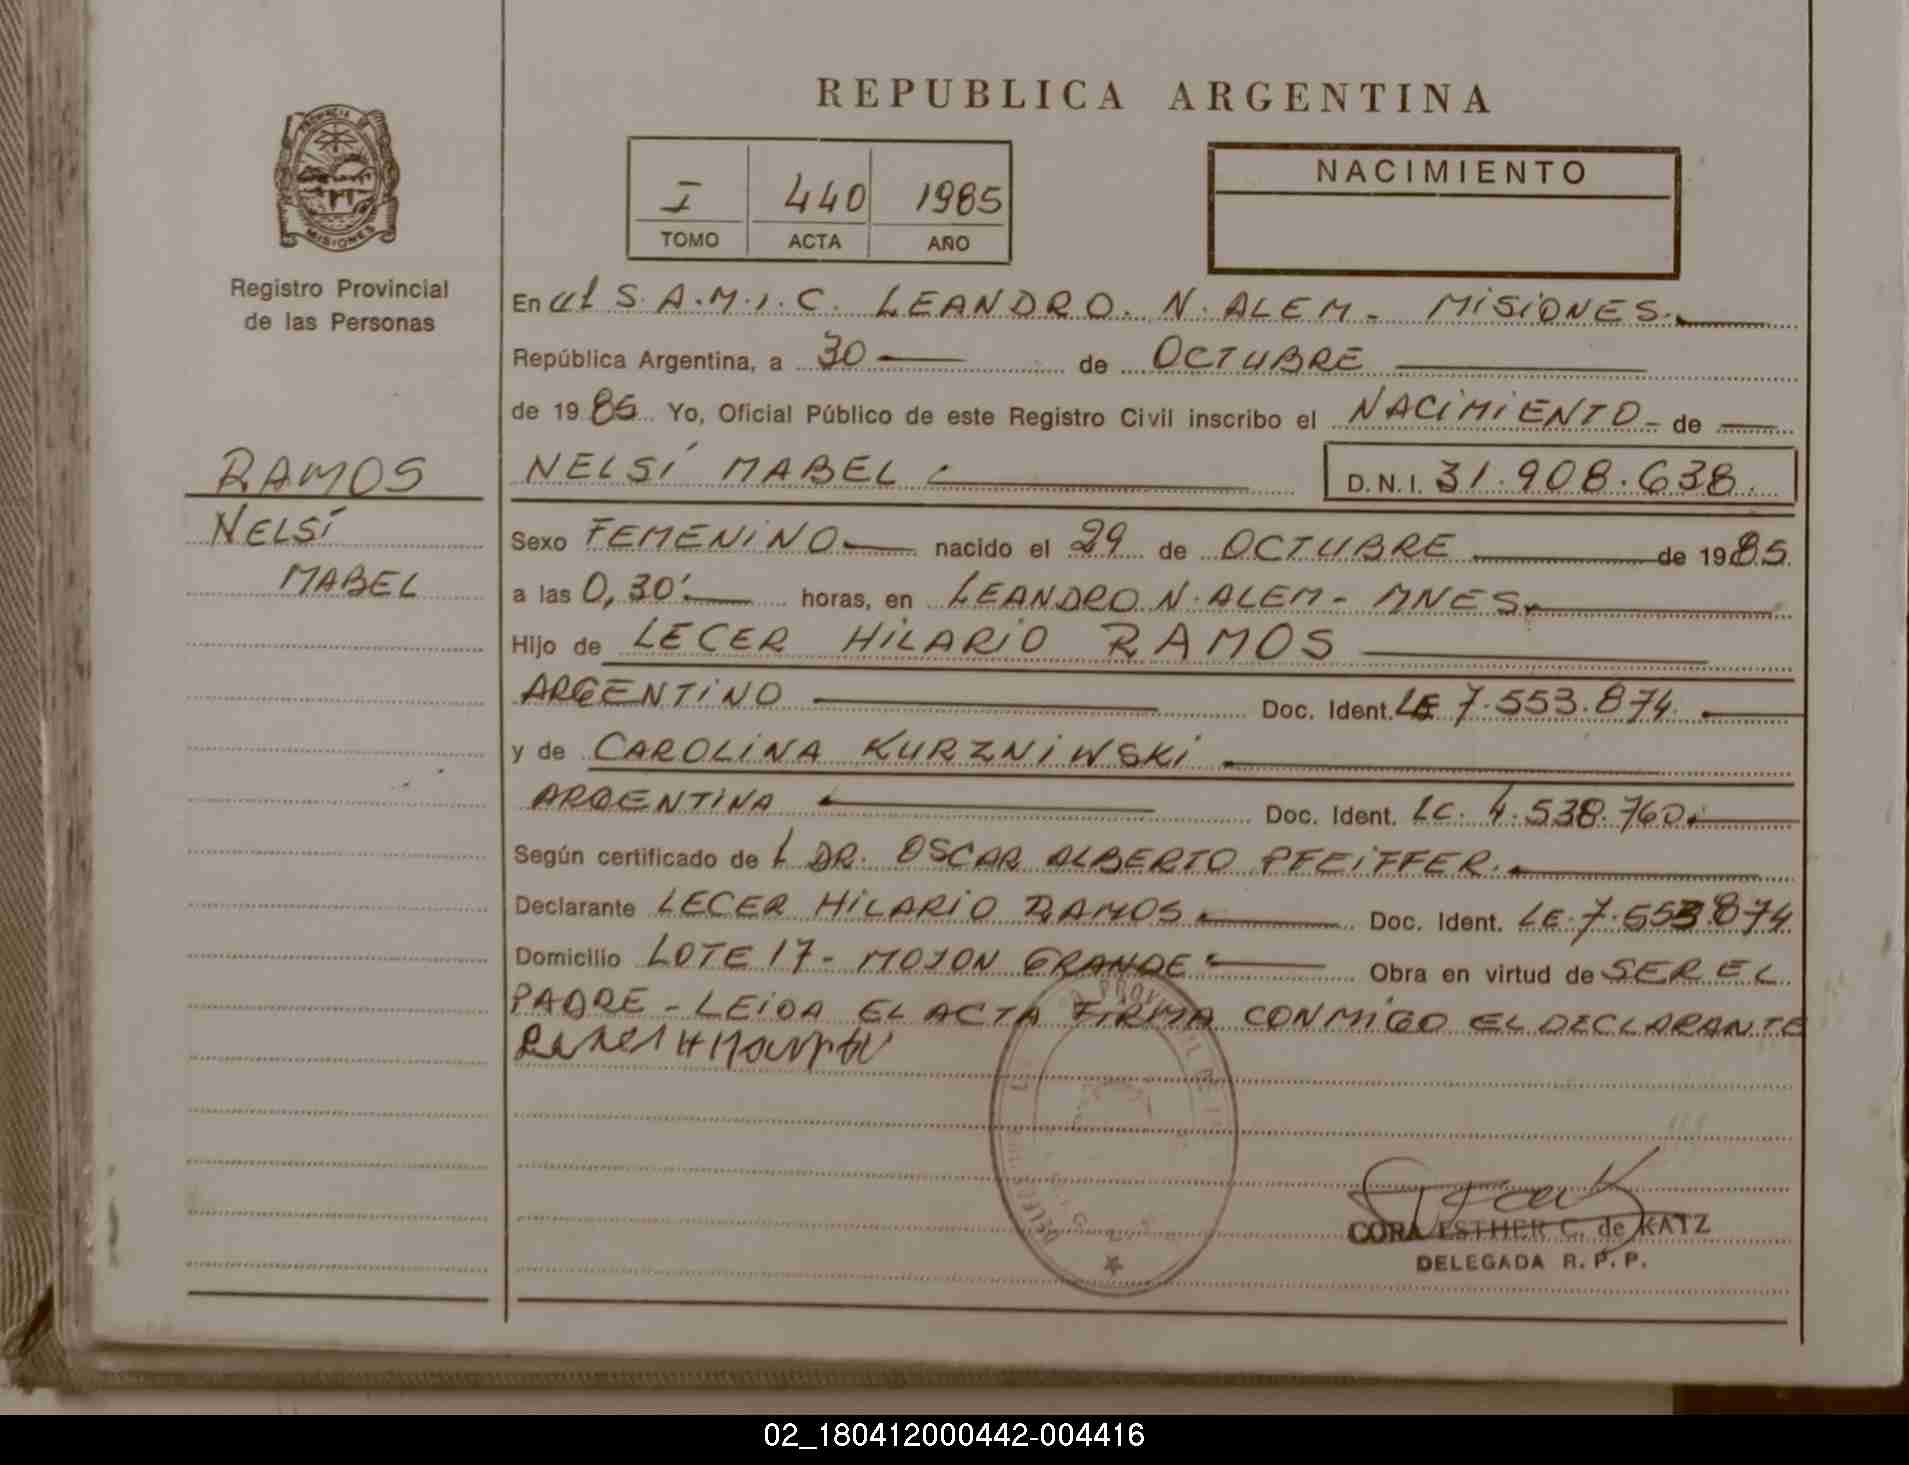 REPUBLICA ARGENTINA
PROVINCIA DE
MISIONES
Registro Provincial
de las Personas
I 440 1985
TOMO ACTA AÑO
NACIMIENTO
En el S.A.M.I.C. LEANDRO. N. ALEM - MISIONES.
República Argentina, a 30 de OCTUBRE
de 1985 Yo, Oficial Público de este Registro Civil inscribo el NACIMIENTO - de
RAMOS
NELSÍ
MABEL
NELSÍ MABEL
D.N.I. 31.908.638.
Sexo FEMENINO nacido el 29 de OCTUBRE de 1985.
a las 0,30' horas, en LEANDRO N. ALEM - MNES.
Hijo de LECER HILARIO RAMOS
ARGENTINO Doc. Ident. LE 7.553.874.
y de CAROLINA KURZNIWSKI
ARGENTINA Doc. Ident. LC. 4.538.760.
Según certificado de L DR. OSCAR ALBERTO PFEIFFER.
Declarante LECER HILARIO RAMOS Doc. Ident. LE. 7.553.874
Domicilio LOTE 17 - MOJON GRANDE Obra en virtud de SER EL
PADRE - LEIDA EL ACTA FIRMA CONMIGO EL DECLARANTE
CORA ESTHER C. de KATZ
DELEGADA R. P. P.
02_180412000442-004416